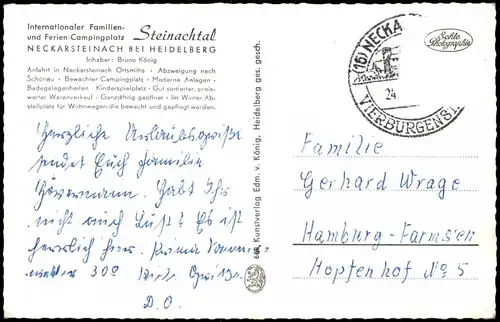 Internationaler Familien-
und Ferien-Campingplatz Steinachtal
NECKARSTEINACH BEI HEIDELBERG
Inhaber: Bruno König
Anfahrt in Neckarsteinach Ortsmitte - Abzweigung nach
Schönau - Bewachter Campingplatz - Moderne Anlagen -
Badegelegenheiten Kinderspielplatz - Gut sortierter, preis-
werter Warenverkauf - Ganzjährig geöffnet - Im Winter Ab-
stellplatz für Wohnwagen die bewacht und gepflegt werden.
Herzliche Urlaubsgrüße
sendet Euch Familie
Habt Ihr
nicht auch Lust? Es ist
herrlich hier. Prima
30°
Kunstverlag Edm. v. König, Heidelberg ges. gesch.
Echte
Photographie
(16) NECKA
24
VIERBURGENST
Familie
Gerhard Wrage
Hamburg-Farmsen
Hopfenhof No 5